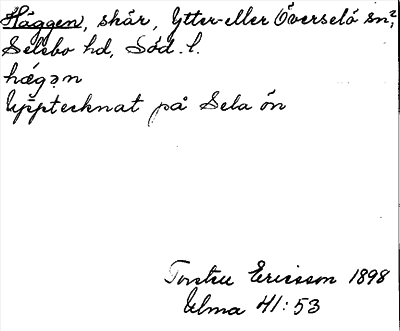 Häggen, skär, Ytter- eller Överselö sn?,
Selebo hd, Söd. l.
hægən
Upptecknat på Sela ön
Torsten Ericsson 1898
Ulma 41:53